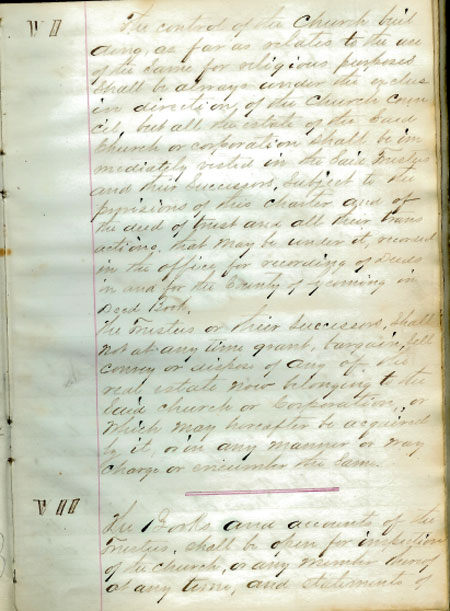 VI
The control of the Church buil
ding, as far as relates to the use
of the same for religious purposes
shall be always under the exclus
iv direction, of the Church Coun
cil, but all the estate of the said
Church or corporation shall be im
mediately vested in the said Trustees
and their successors, subject to the
provisions of this Charter and of
the deed of trust and all their trans
actions. that may be under it, recorded
in the office for recording of Deeds
in and for the County of Lycoming in
Deed Book.
The Trustees or their Successors, shall
not at any time grant, bargain, sell
convey or dispose of any of the
real estate now belonging to the
said church or Corporation, or
which may hereafter be acquired
by it, or in any manner or way
charge or encumber the same.
VII
The Books and accounts of the
Trustees, shall be open for inspection
of the church, or any member thereof
at any time, and statements of